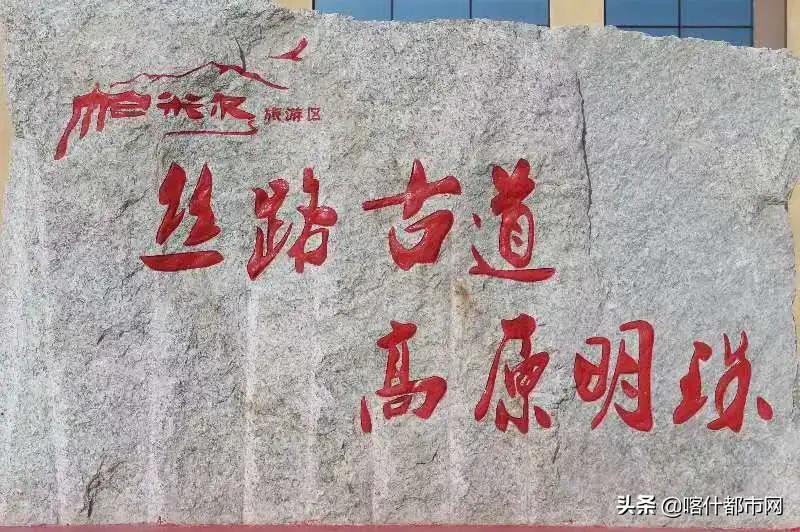 帕米尔旅游区
丝路古道
高原明珠
头条@喀什都市网